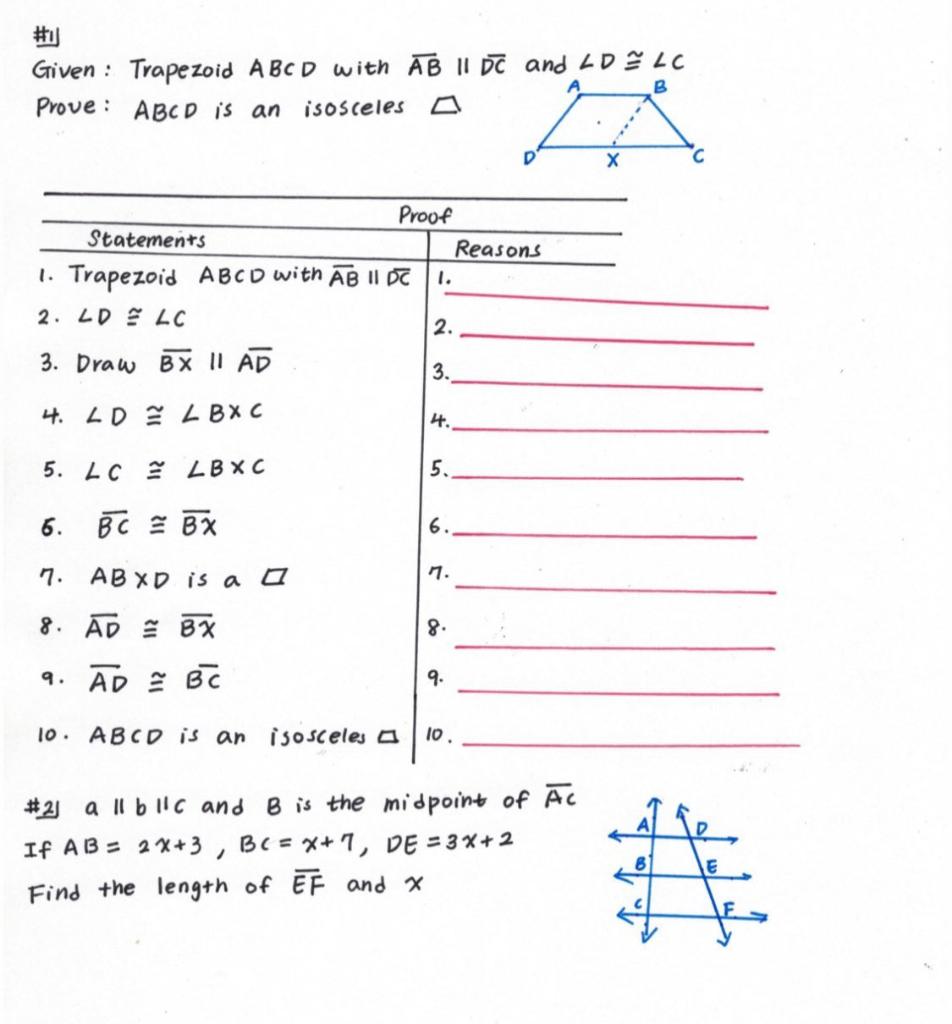 #1)
Given : Trapezoid ABCD with A̅B̅ || D̅C̅ and ∠D ≅ ∠C
Prove : ABCD is an isosceles ⏢
A B
D X C
Proof
Statements Reasons
1. Trapezoid ABCD with A̅B̅ || D̅C̅ 1.
2. ∠D ≅ ∠C 2.
3. Draw B̅X̅ || A̅D̅ 3.
4. ∠D ≅ ∠BXC 4.
5. ∠C ≅ ∠BXC 5.
6. B̅C̅ ≅ B̅X̅ 6.
7. ABXD is a ▱ 7.
8. A̅D̅ ≅ B̅X̅ 8.
9. A̅D̅ ≅ B̅C̅ 9.
10. ABCD is an isosceles ⏢ 10.
#2) a || b || c and B is the midpoint of A̅C̅
If AB = 2x+3 , BC = x+7, DE = 3x+2
Find the length of E̅F̅ and x
A D
B E
C F